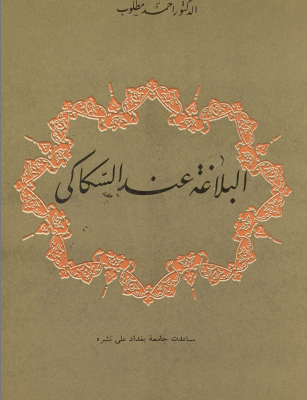 الدكتور احمد مطلوب
البلاغة عند السكاكي
ساعدت جامعة بغداد على نشره